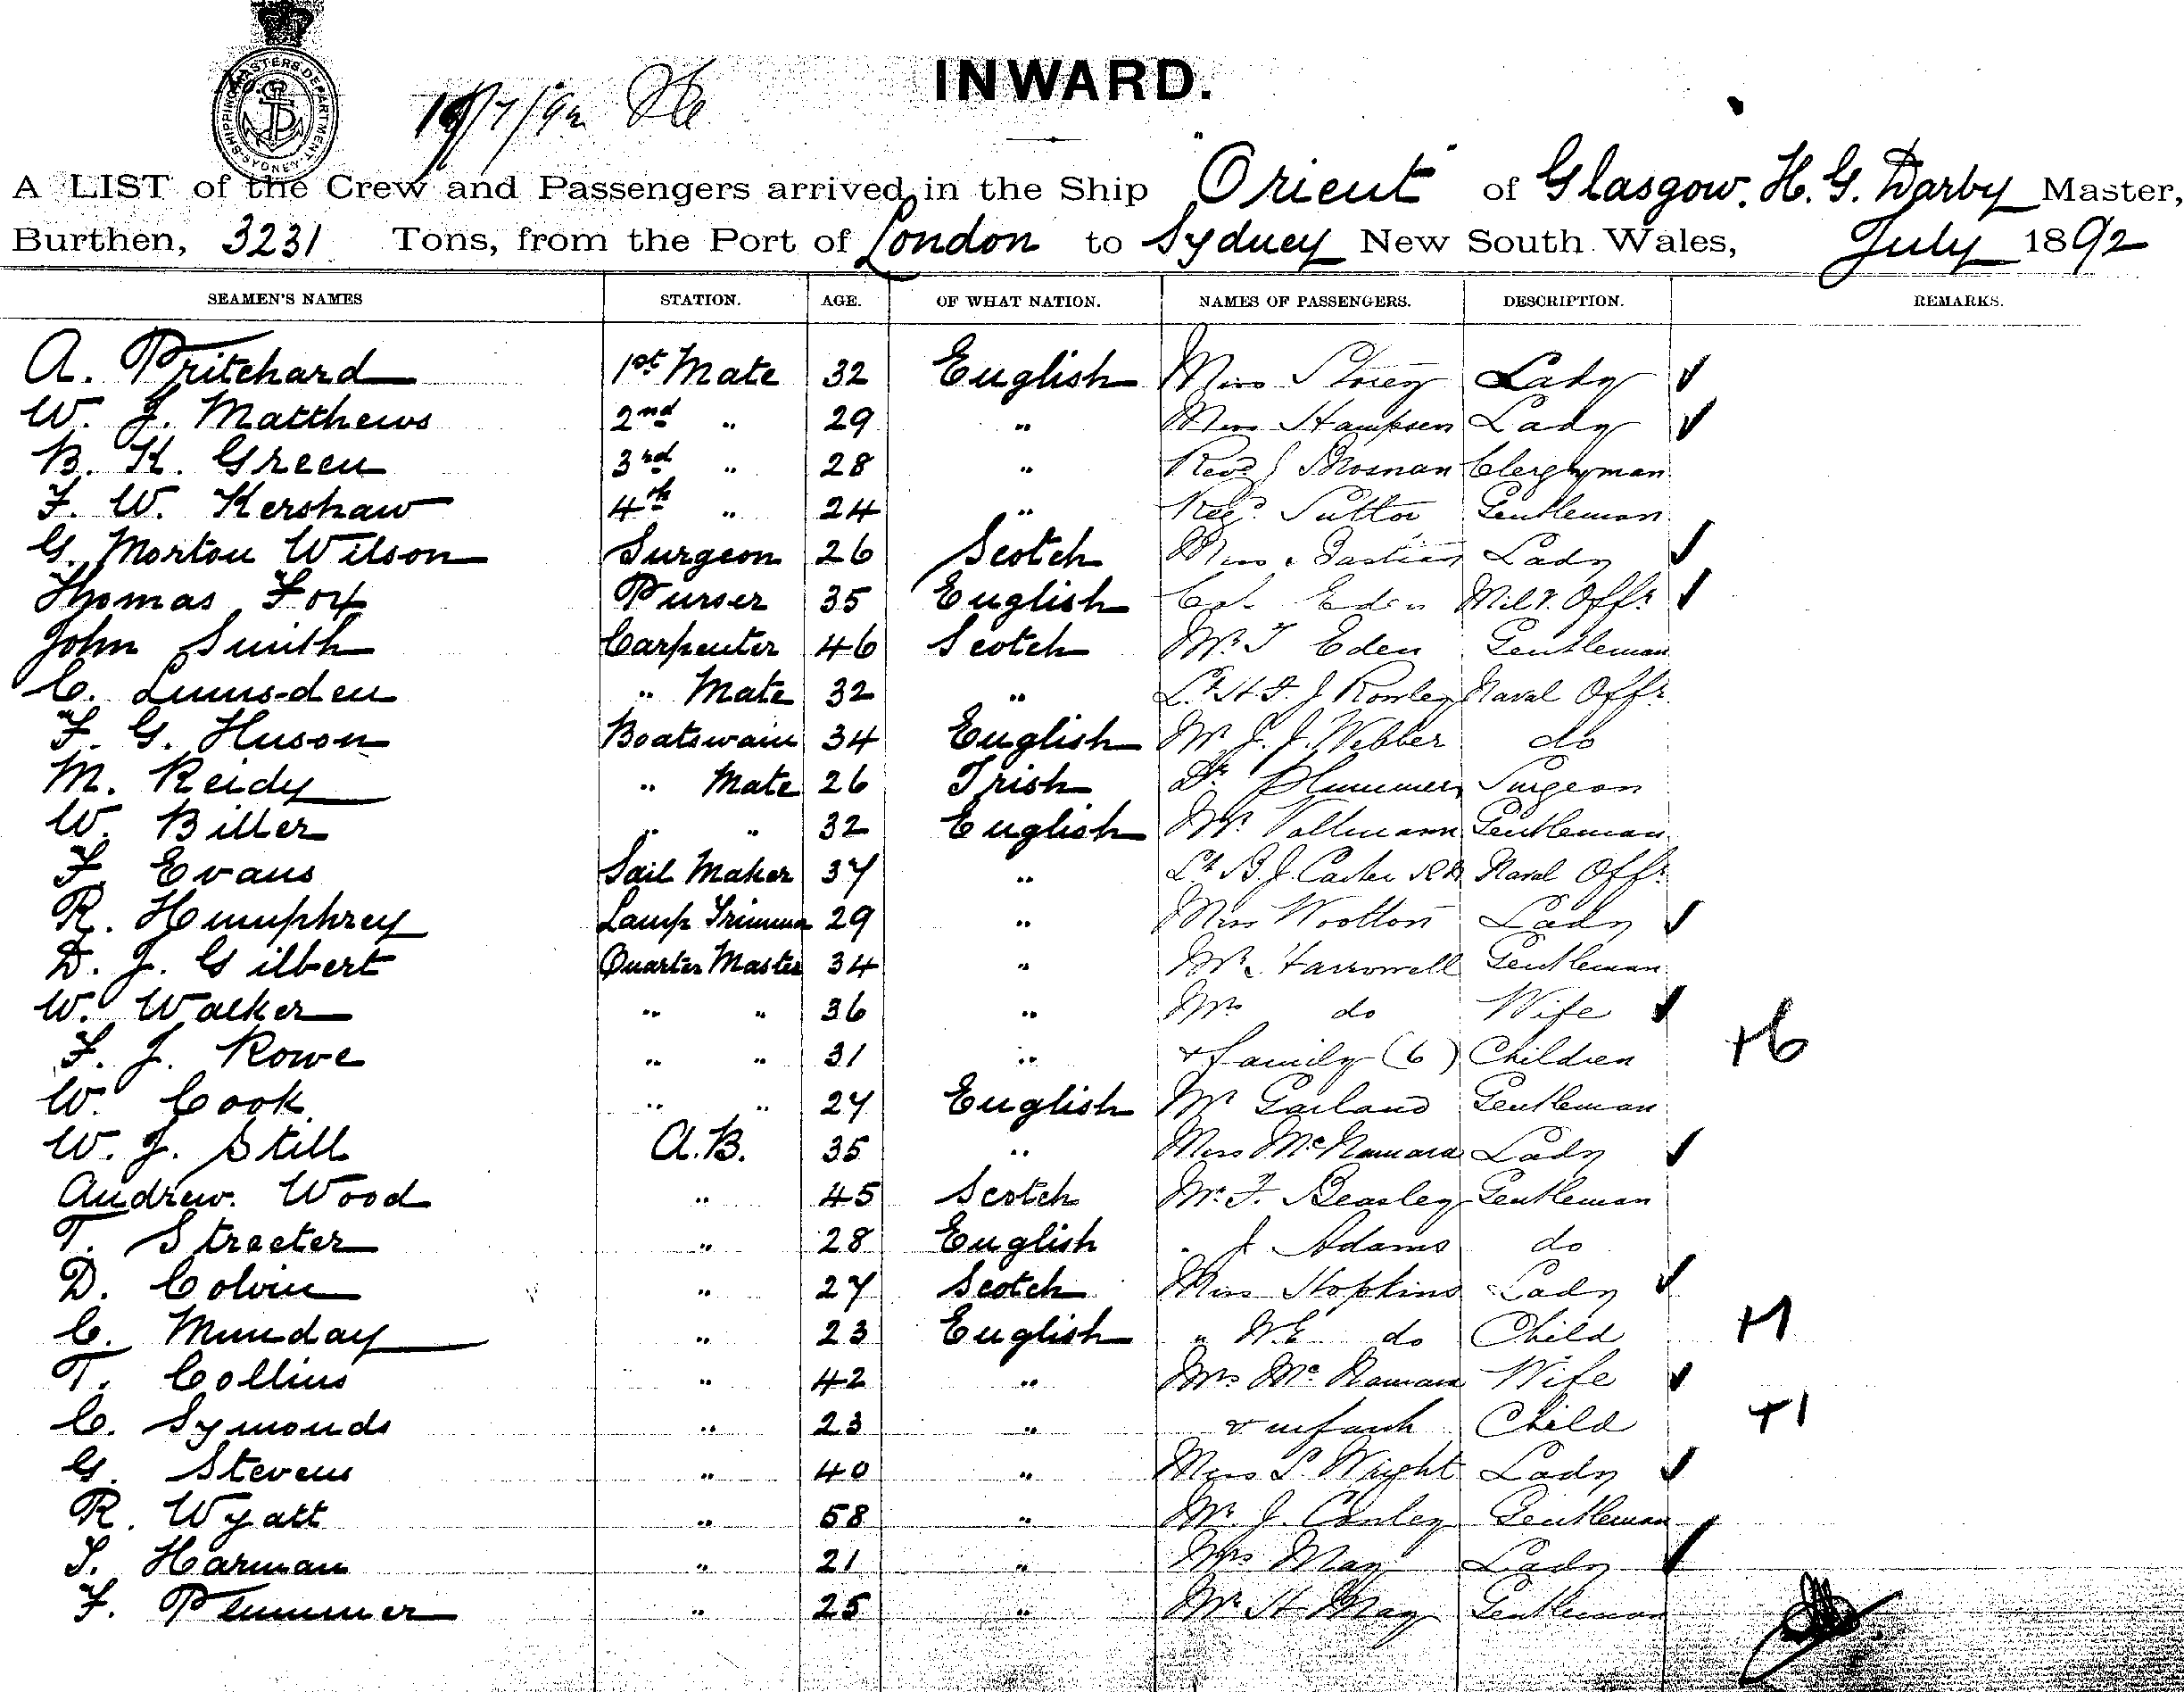 SHIPPING MASTERS DEPARTMENT
SYDNEY
INWARD.
A LIST of the Crew and Passengers arrived in the Ship "Orient" of Glasgow, H. G. Darby Master,
Burthen, 3231 Tons, from the Port of London to Sydney New South Wales, July 1892
SEAMEN'S NAMES STATION. AGE. OF WHAT NATION. NAMES OF PASSENGERS. DESCRIPTION. REMARKS.
A. Pritchard 1st Mate 32 English Miss Storey Lady
W. J. Matthews 2nd " 29 " Miss Hampson Lady
B. K. Green 3rd " 28 " Revd J Brosnan Clergyman
F. W. Kershaw 4th " 24 " Regd Sutton Gentleman
G. Morton Wilson Surgeon 26 Scotch Lady
Thomas Fox Purser 35 English Col. Eden Milt. Offr
John Smith Carpenter 46 Scotch Mr T Eden Gentleman
C. Lumsden " Mate 32 " Lt H. F. J Rowley Naval Offr
F. G. Huson Boatswain 34 English Mr J. J. Webber do
M. Reidy " Mate 26 Irish Dr Plummer Surgeon
W. Biller " " 32 English Mr Vollmann Gentleman
F. Evans Sail Maker 37 " Lt B. J. Carter RN Naval Offr
R. Humphrey Lamp Trimmer 29 " Miss Wootton Lady
D. J. Gilbert Quarter Master 34 " Mr Farrowell Gentleman
W. Walker " " 36 " Mrs do Wife
F. J. Rowe " " 31 " & family (6) Children +6
W. Cook " " 27 English Mr Garland Gentleman
W. J. Still A.B. 35 " Miss McNamara Lady
Andrew Wood " 45 Scotch Mr F. Beasley Gentleman
T. Streeter " 28 English " J Adams do
D. Colvin " 27 Scotch Miss Hopkins Lady
C. Munday " 23 English " W.E do Child +1
T. Collins " 42 " Mrs McNamara Wife
C. Symonds " 23 " & infant Child +1
G. Stevens " 40 " Miss L. Wright Lady
R. Wyatt " 58 " Mr J. Conley Gentleman
S. Harman " 21 " Mrs May Lady
F. Plummer " 25 " Mr H May Gentleman